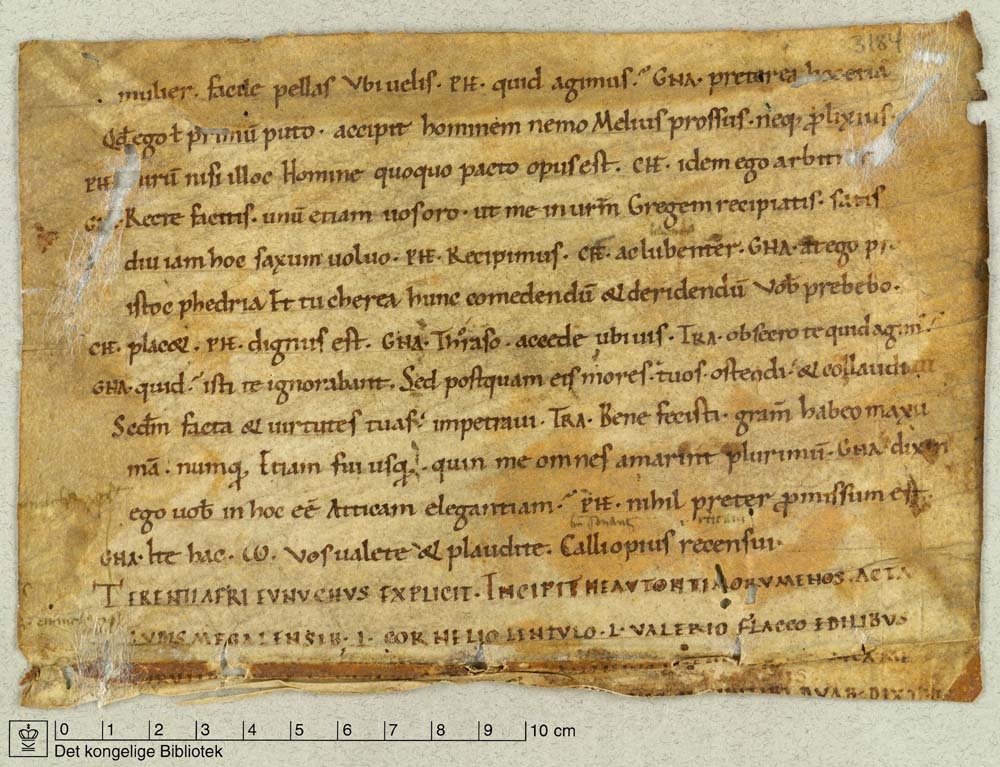 3184
mulier. facile pellas Vbi uelis. PH. quid agimus? GNA. preterea hoc etiā
Qđ ego ł primū puto. accipit hominem nemo Melius prossus. neq; ꝓlixius.
PH. nisi illoc Homine quoquo pacto opus est. CH. idem ego arbitror
Recte facitis. unū etiam uos oro. ut me in ur̄m Gregem recipiatis. satis
diu iam hoc saxum uoluo. PH. Recipimus. CH. ac lubenter. GNA. at ego pr.
istoc phedria Et tu cherea hunc comedendū & deridendū Vob̄ prebebo.
CH. placet. PH. dignus est. GNA. Thraso. accede ubi uis. TRA. obsecro te quid agim̄?
GNA. quid? isti te ignorabant. Sed postquam eis mores. tuos. ostendi. & collaudaui
Scđm facta & uirtutes tuas? impetraui. TRA. Bene fecisti. gram̄ habeo maxu
mā. numq; Etiam fui usq; quin me omnes amarint plurimū. GNA. dixin
ego uob̄ in hoc eē Atticam elegantiam? PH. nihil preter ꝓmissum est.
GNA. Ite hac. ω. Vos ualete & plaudite. Calliopius recensui.
TERENTII AFRI EVNVCHVS EXPLICIT. INCIPIT HEAVTONTIMORVMENOS. ACTA
LVDIS MEGALENSIB. L. CORNELIO LENTVLO. L. VALERIO FLACCO EDILIBVS
0 1 2 3 4 5 6 7 8 9 10 cm
Det kongelige Bibliotek